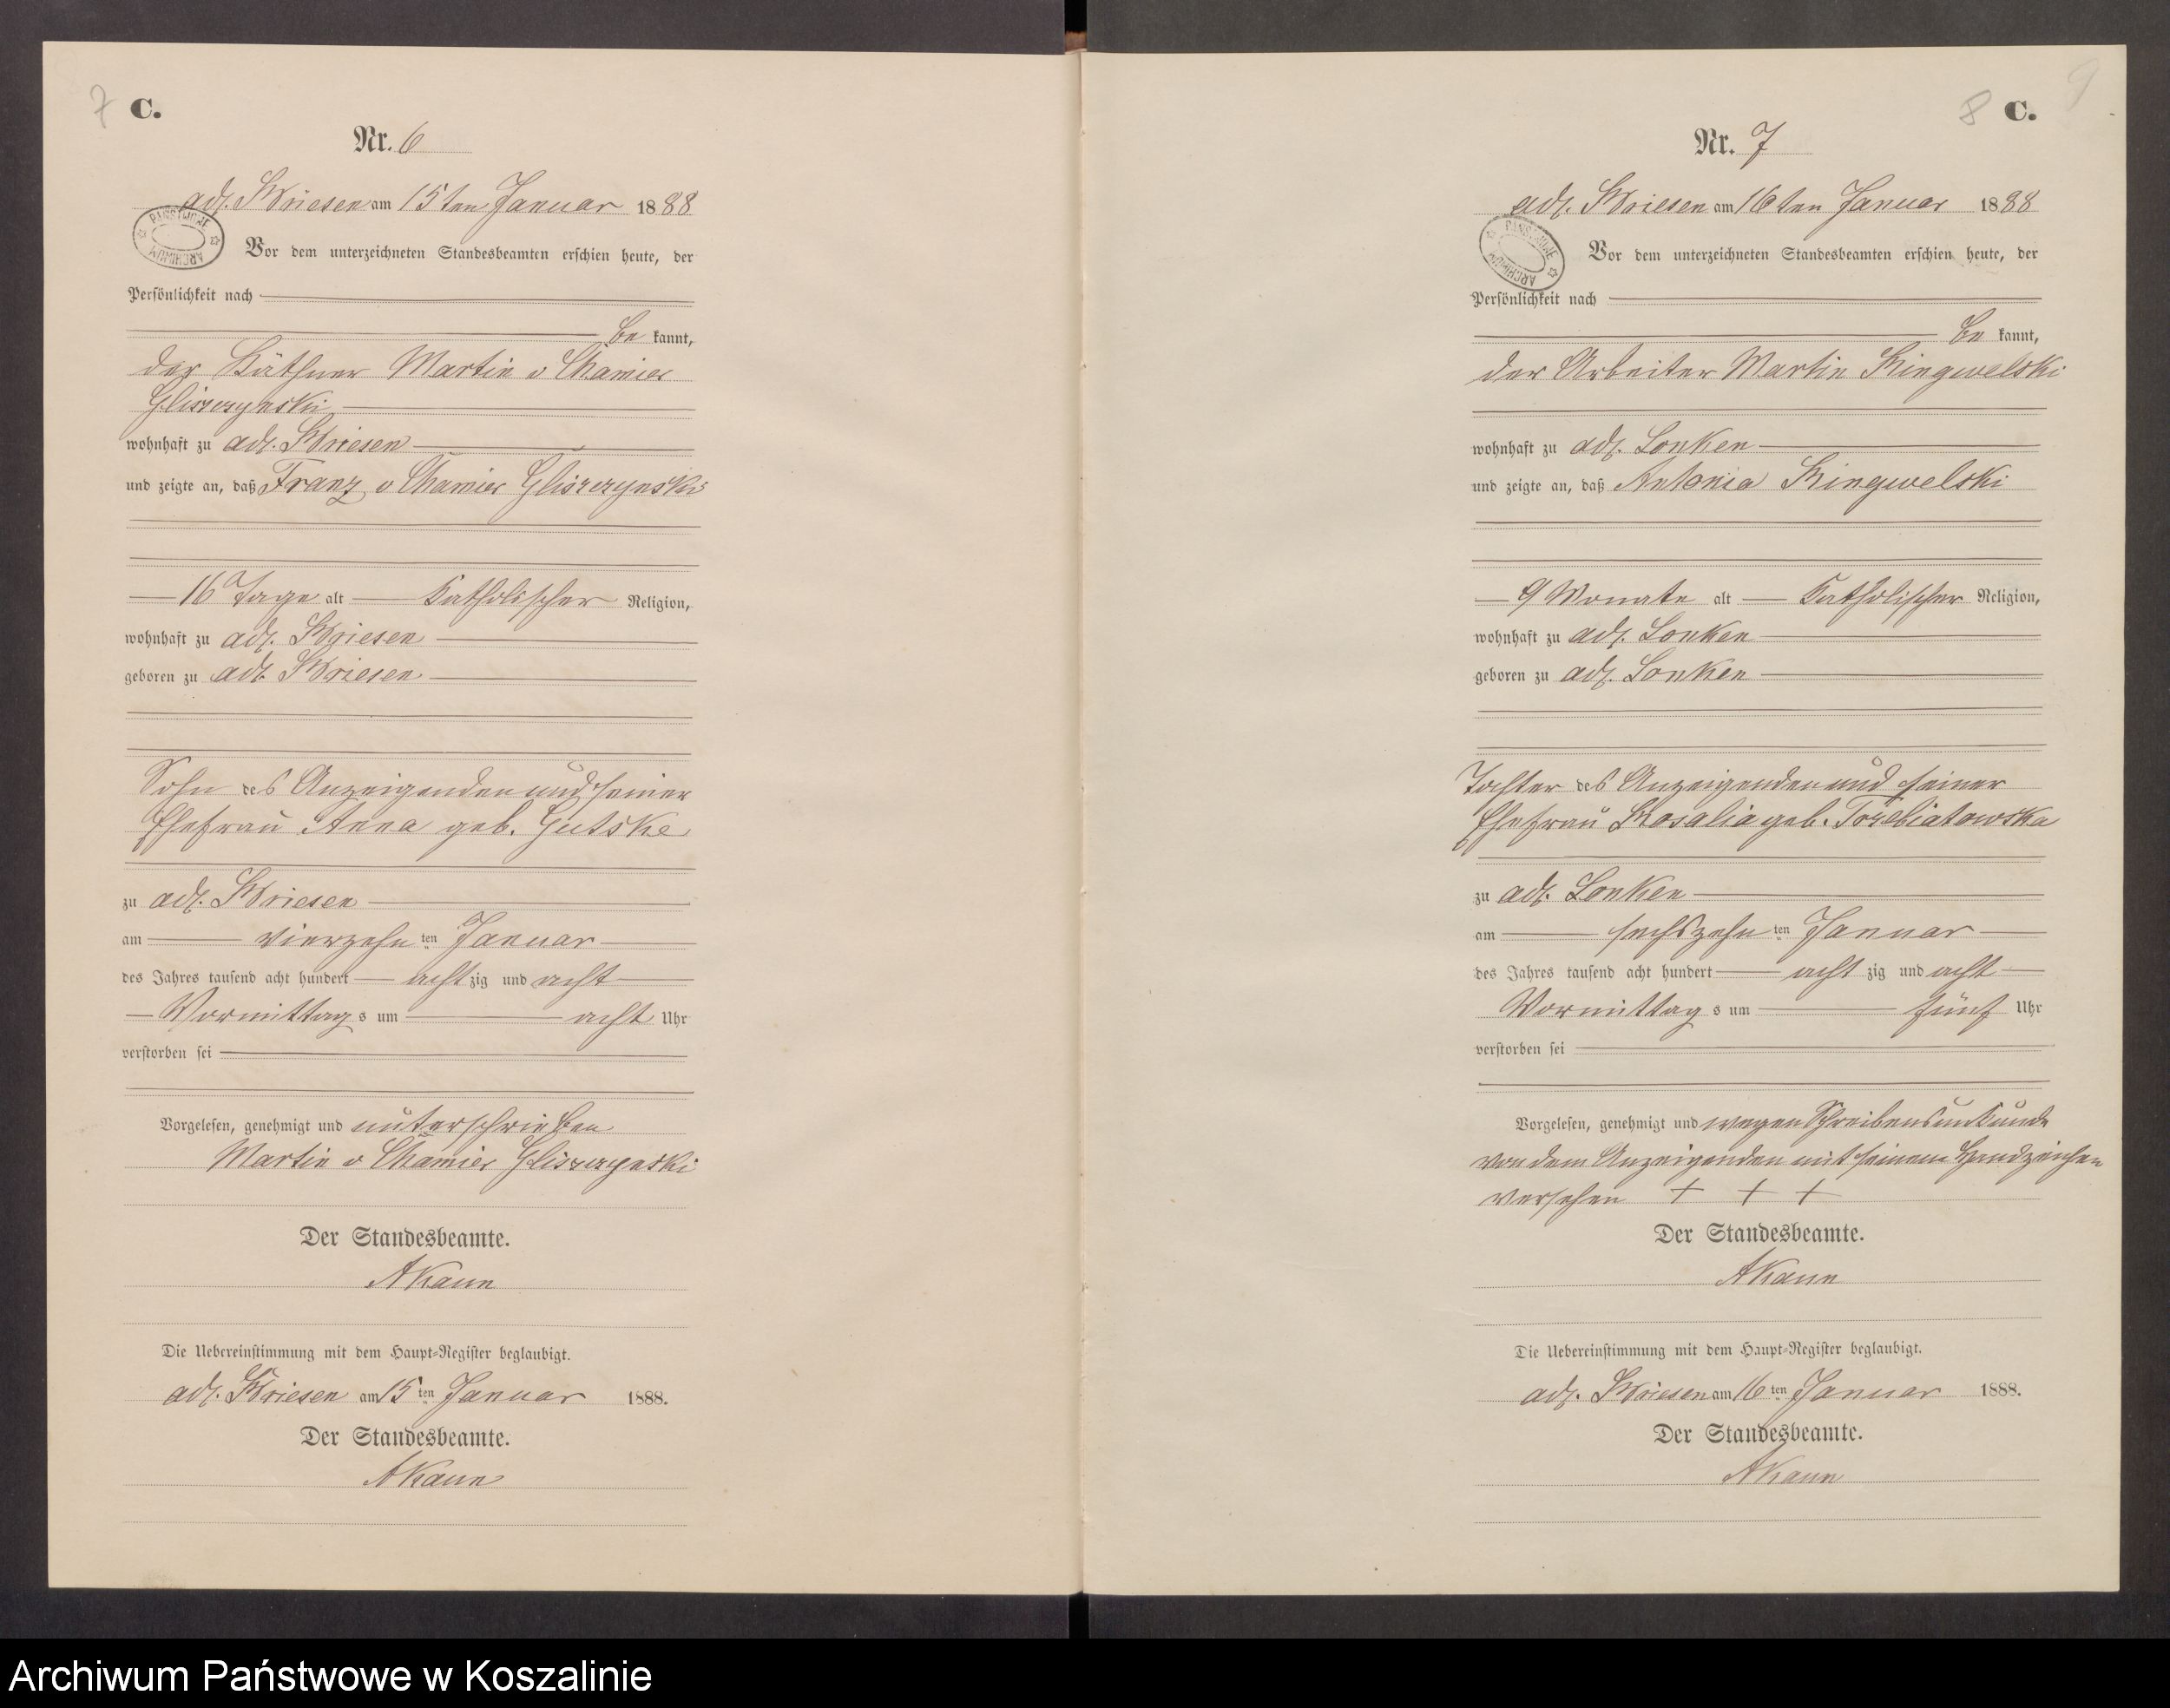 7 C.
Nr. 6
adl. Briesen am 15ten Januar 1888
PAŃSTWOWE ARCHIWUM
Vor dem unterzeichneten Standesbeamten erschien heute, der
Persönlichkeit nach
be kannt,
der Käthner Martin v Chamier
Gliszczynski
wohnhaft zu adl. Briesen
und zeigte an, daß Franz v Chamier Gliszczynski
16 Tage alt Katholischer Religion,
wohnhaft zu adl. Briesen
geboren zu adl. Briesen
Sohn des Anzeigenden und seiner
Ehefrau Anna geb. Gutske
zu adl. Briesen
am vierzehn ten Januar
des Jahres tausend acht hundert acht zig und acht
Vormittag s um acht Uhr
verstorben sei
Vorgelesen, genehmigt und unterschrieben
Martin v Chamier Gliszczynski
Der Standesbeamte.
AKaun
Die Uebereinstimmung mit dem Haupt-Register beglaubigt.
adl. Briesen am 15 ten Januar 1888.
Der Standesbeamte.
AKaun
8 C. 9
Nr. 7
adl. Briesen am 16ten Januar 1888
PAŃSTWOWE ARCHIWUM
Vor dem unterzeichneten Standesbeamten erschien heute, der
Persönlichkeit nach
be kannt,
der Arbeiter Martin Kingwelski
wohnhaft zu adl. Lonken
und zeigte an, daß Antonia Kingwelski
9 Monate alt Katholischer Religion,
wohnhaft zu adl. Lonken
geboren zu adl. Lonken
Tochter des Anzeigenden und seiner
Ehefrau Rosalia geb. Trzebiatowska
zu adl. Lonken
am sechszehn ten Januar
des Jahres tausend acht hundert acht zig und acht
Vormittag s um fünf Uhr
verstorben sei
Vorgelesen, genehmigt und wegen Schreibensunkunde
von dem Anzeigenden mit seinem Handzeichen
versehen + + +
Der Standesbeamte.
AKaun
Die Uebereinstimmung mit dem Haupt-Register beglaubigt.
adl. Briesen am 16 ten Januar 1888.
Der Standesbeamte.
AKaun
Archiwum Państwowe w Koszalinie